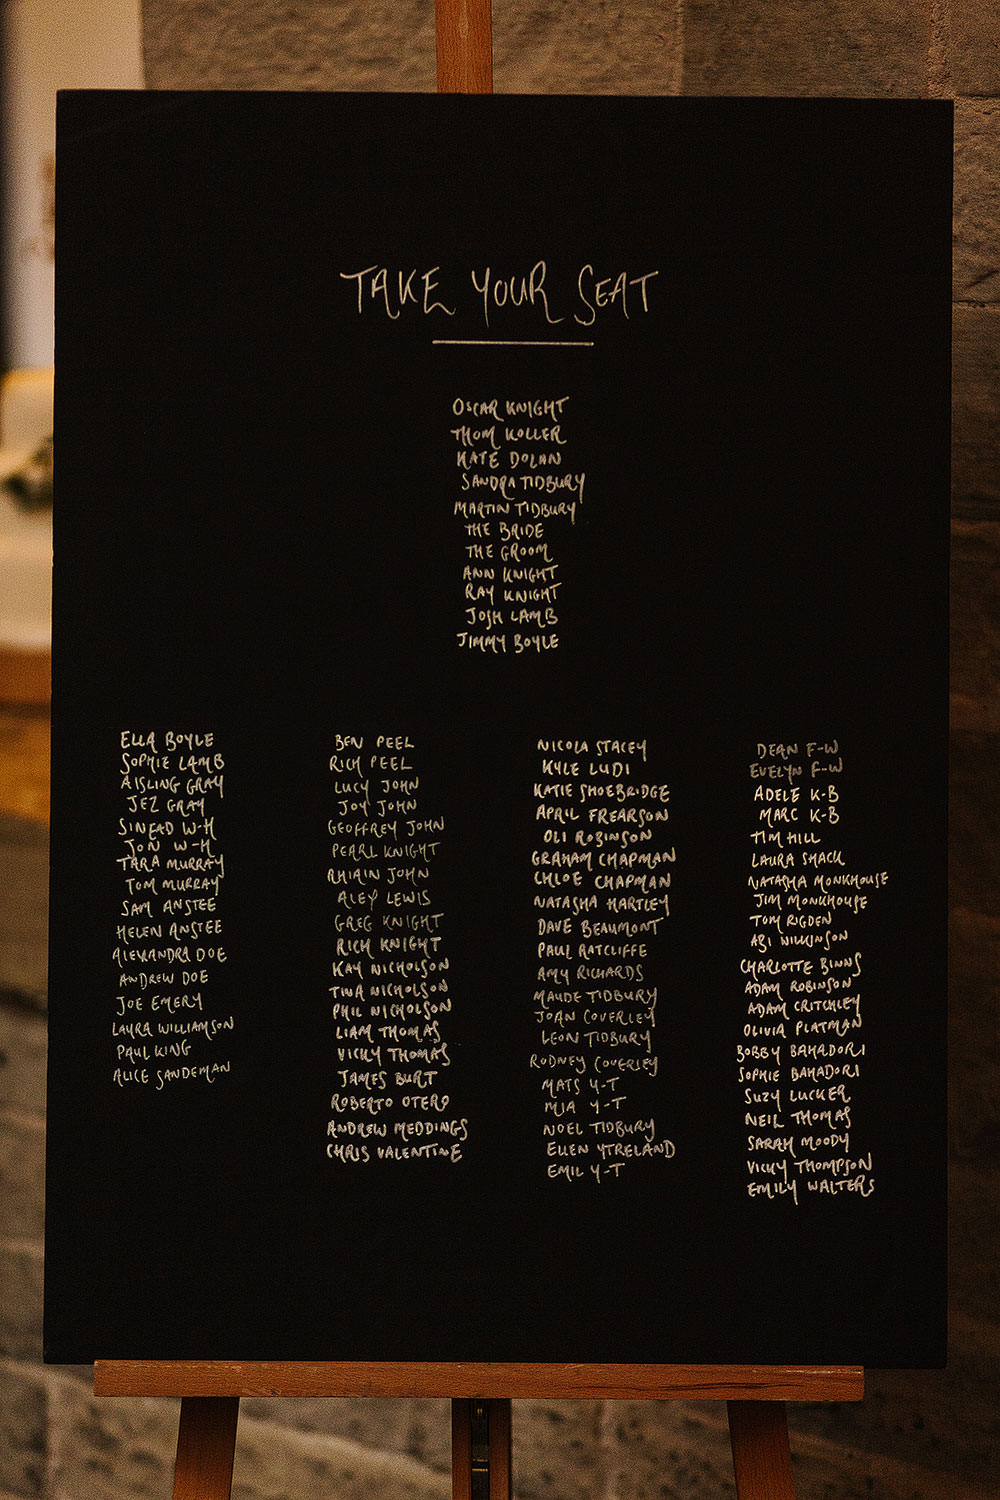 TAKE YOUR SEAT
OSCAR KNIGHT
THOM KOLLER
KATE DOLAN
SANDRA TIDBURY
MARTIN TIDBURY
THE BRIDE
THE GROOM
ANN KNIGHT
RAY KNIGHT
JOSH LAMB
JIMMY BOYLE
ELLA BOYLE
SOPHIE LAMB
AISLING GRAY
JEZ GRAY
SINEAD W-H
JON W-H
TARA MURRAY
TOM MURRAY
SAM ANSTEE
HELEN ANSTEE
ALEXANDRA DOE
ANDREW DOE
JOE EMERY
LAURA WILLIAMSON
PAUL KING
ALICE SANDEMAN
BEN PEEL
RICH PEEL
LUCY JOHN
JOY JOHN
GEOFFREY JOHN
PEARL KNIGHT
RHIAIN JOHN
ALEY LEWIS
GREG KNIGHT
RICH KNIGHT
KAY NICHOLSON
TINA NICHOLSON
PHIL NICHOLSON
LIAM THOMAS
VICKY THOMAS
JAMES BURT
ROBERTO OTERO
ANDREW MEDDINGS
CHRIS VALENTINE
NICOLA STACEY
KYLE LUDI
KATIE SHOEBRIDGE
APRIL FREARSON
OLI ROBINSON
GRAHAM CHAPMAN
CHLOE CHAPMAN
NATASHA HARTLEY
DAVE BEAUMONT
PAUL RATCLIFFE
AMY RICHARDS
MAUDE TIDBURY
JOAN COVERLEY
LEON TIDBURY
RODNEY COVERLEY
MATS Y-T
MIA Y-T
NOEL TIDBURY
ELLEN YTRELAND
EMIL Y-T
DEAN F-W
EVELYN F-W
ADELE K-B
MARC K-B
TIM HILL
LAURA SHACK
NATASHA MONKHOUSE
JIM MONKHOUSE
TOM RIGDEN
ABI WILKINSON
CHARLOTTE BINNS
ADAM ROBINSON
ADAM CRITCHLEY
OLIVIA PLATMAN
BOBBY BAHADORI
SOPHIE BAHADORI
SUZY LUCKER
NEIL THOMAS
SARAH MOODY
VICKY THOMPSON
EMILY WALTERS